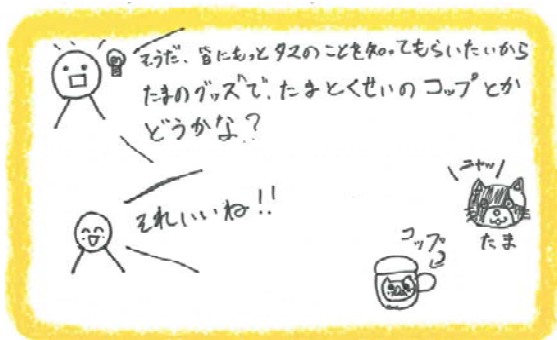 そうだ、皆にもっとタマのことを知ってもらいたいから
たまのグッズで、たまとくせいのコップとか
どうかな?
それいいね!!
ニャッ
たま
コップ